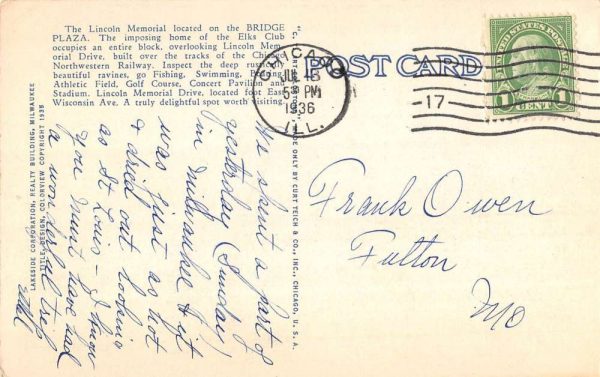 The Lincoln Memorial located on the BRIDGE
PLAZA. The imposing home of the Elks Club
occupies an entire block, overlooking Lincoln Mem-
orial Drive, built over the tracks of the Chicago
Northwestern Railway. Inspect the deep rustic,
beautiful ravines, go Fishing, Swimming,
Athletic Field, Golf Course, Concert Pavilion and
Stadium. Lincoln Memorial Drive, located foot East
Wisconsin Ave. A truly delightful spot worth visiting.
POST CARD
CHICAGO
JUL 13
5 PM
1936
ILL.
17
UNITED STATES POSTAGE
1 CENT 1
LAKESIDE CORPORATION, REALTY BUILDING, MILWAUKEE
TITLE, DESIGN, COLORVIEW COPYRIGHT 1935
USE ONLY BY CURT TEICH & CO., INC., CHICAGO, U. S. A.
We spent a part of
yesterday (Sunday)
in Milwaukee & it
was just as hot
& dried out looking
as St Louis - I know
you must have had
a wonderful trip
Ethel
Frank Owen
Fulton
Mo